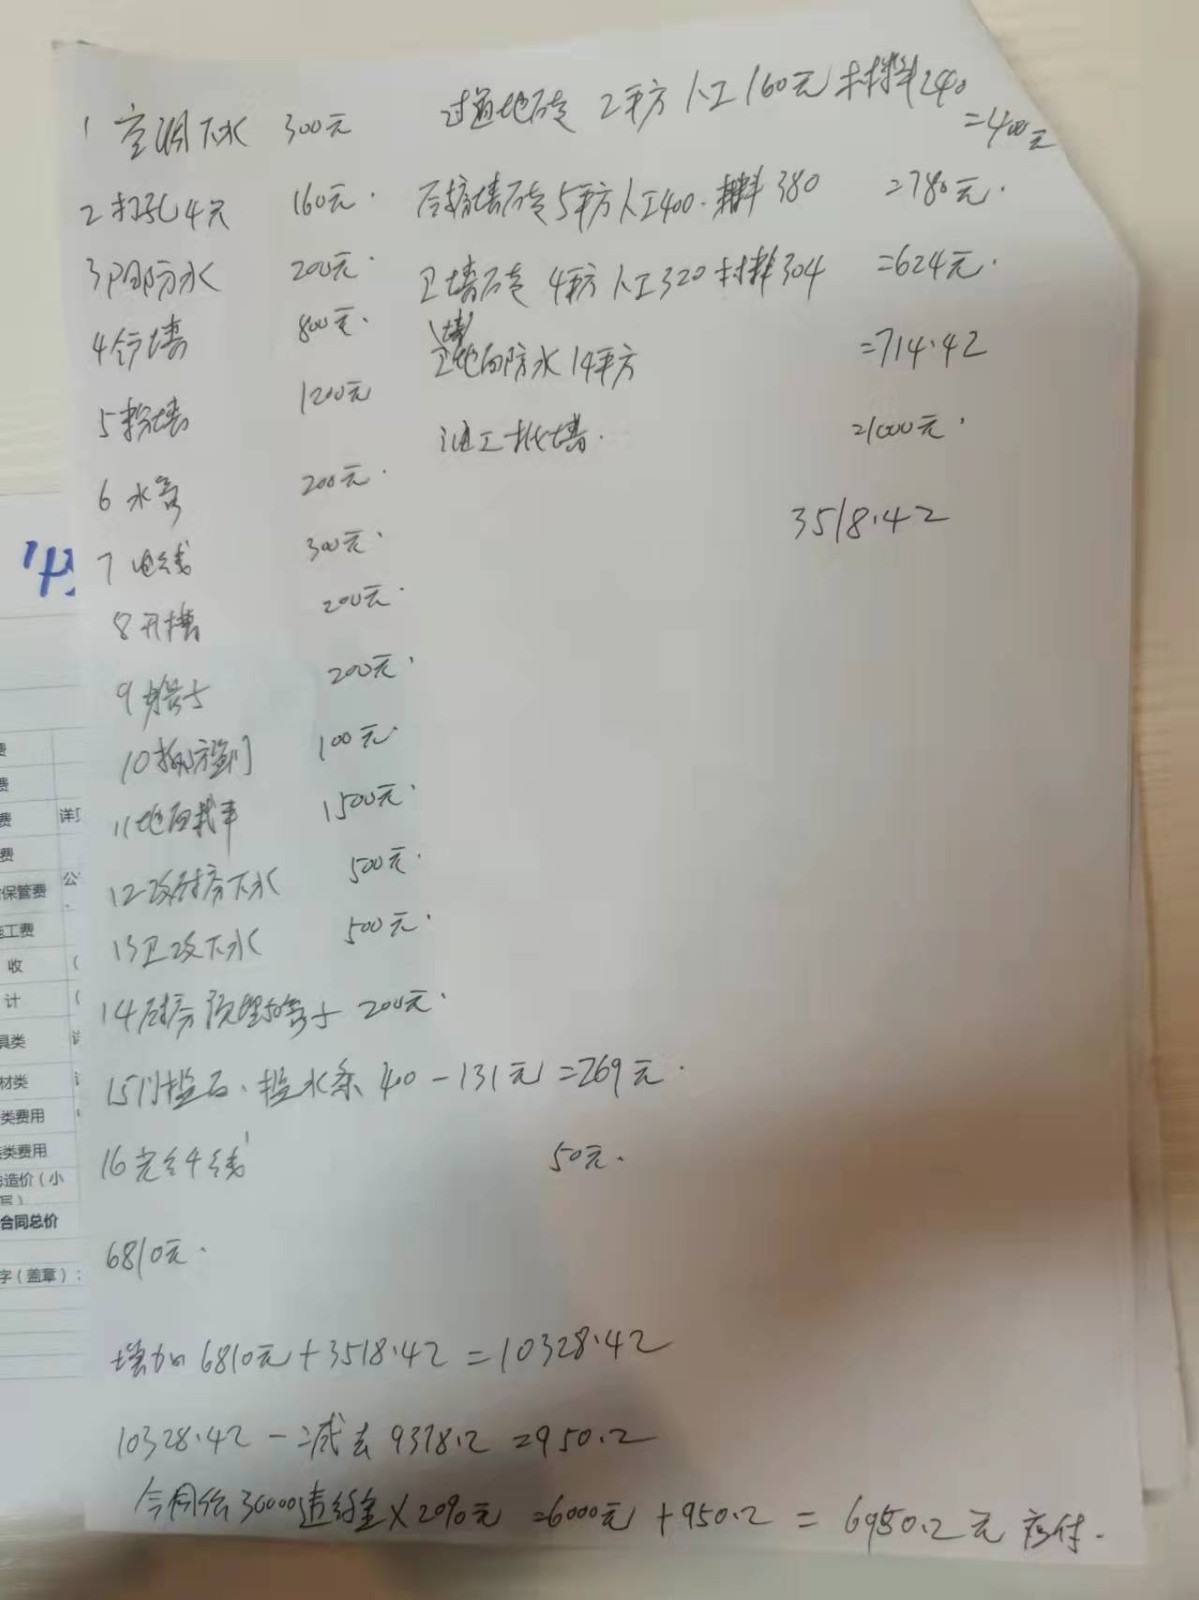 1 空调下水 300元
过道地砖 2平方 人工160元 材料240
=400元
2 打孔4只 160元.
墙砖5平方人工400. 材料380 =780元.
3 防水 200元.
卫墙砖 4平方 人工320 材料304 =624元.
4 墙 800元.
墙
卫地面防水 14平方 =714.42
5 粉墙 1200元
油工批墙. =1000元.
6 水管 200元.
3518.42
7 电线 300元.
8 开槽 200元.
9 200元.
10 拆防盗门 100元.
11 地面找平 1500元.
12 改厨房下水 500元.
13 卫改下水 500元.
14 厨房预埋 200元.
15 门槛石、挡水条 400 - 131元 = 269元.
16 光纤线 50元.
6810元.
增加 6810元 + 3518.42 = 10328.42
10328.42 - 减去 9378.2 = 950.2
合同价 30000违约金 × 20%元 =6000元 + 950.2 = 6950.2元 应付.
费
费
费 详
费
保管费 公
工费
收 (
计 (
具类
材类
类费用
类费用
造价（小
写）
合同总价
字（盖章）：